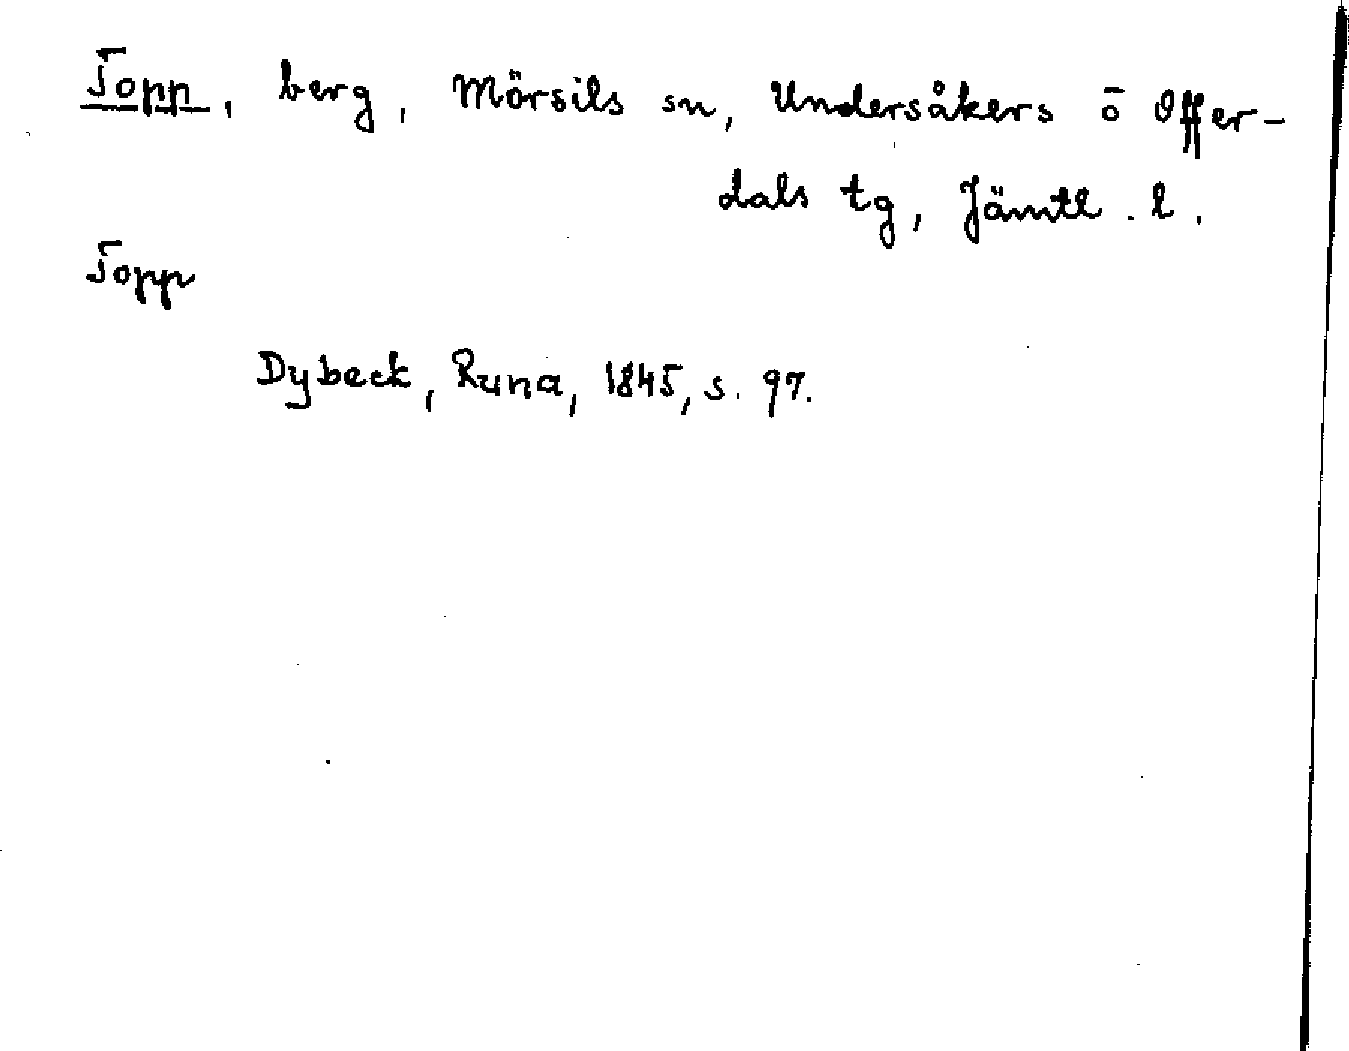 Topp, berg, Mörsils sn, Undersåkers ō Offer-
dals tg, Jämtl. l.
Topp
Dybeck, Runa, 1845, s. 97.